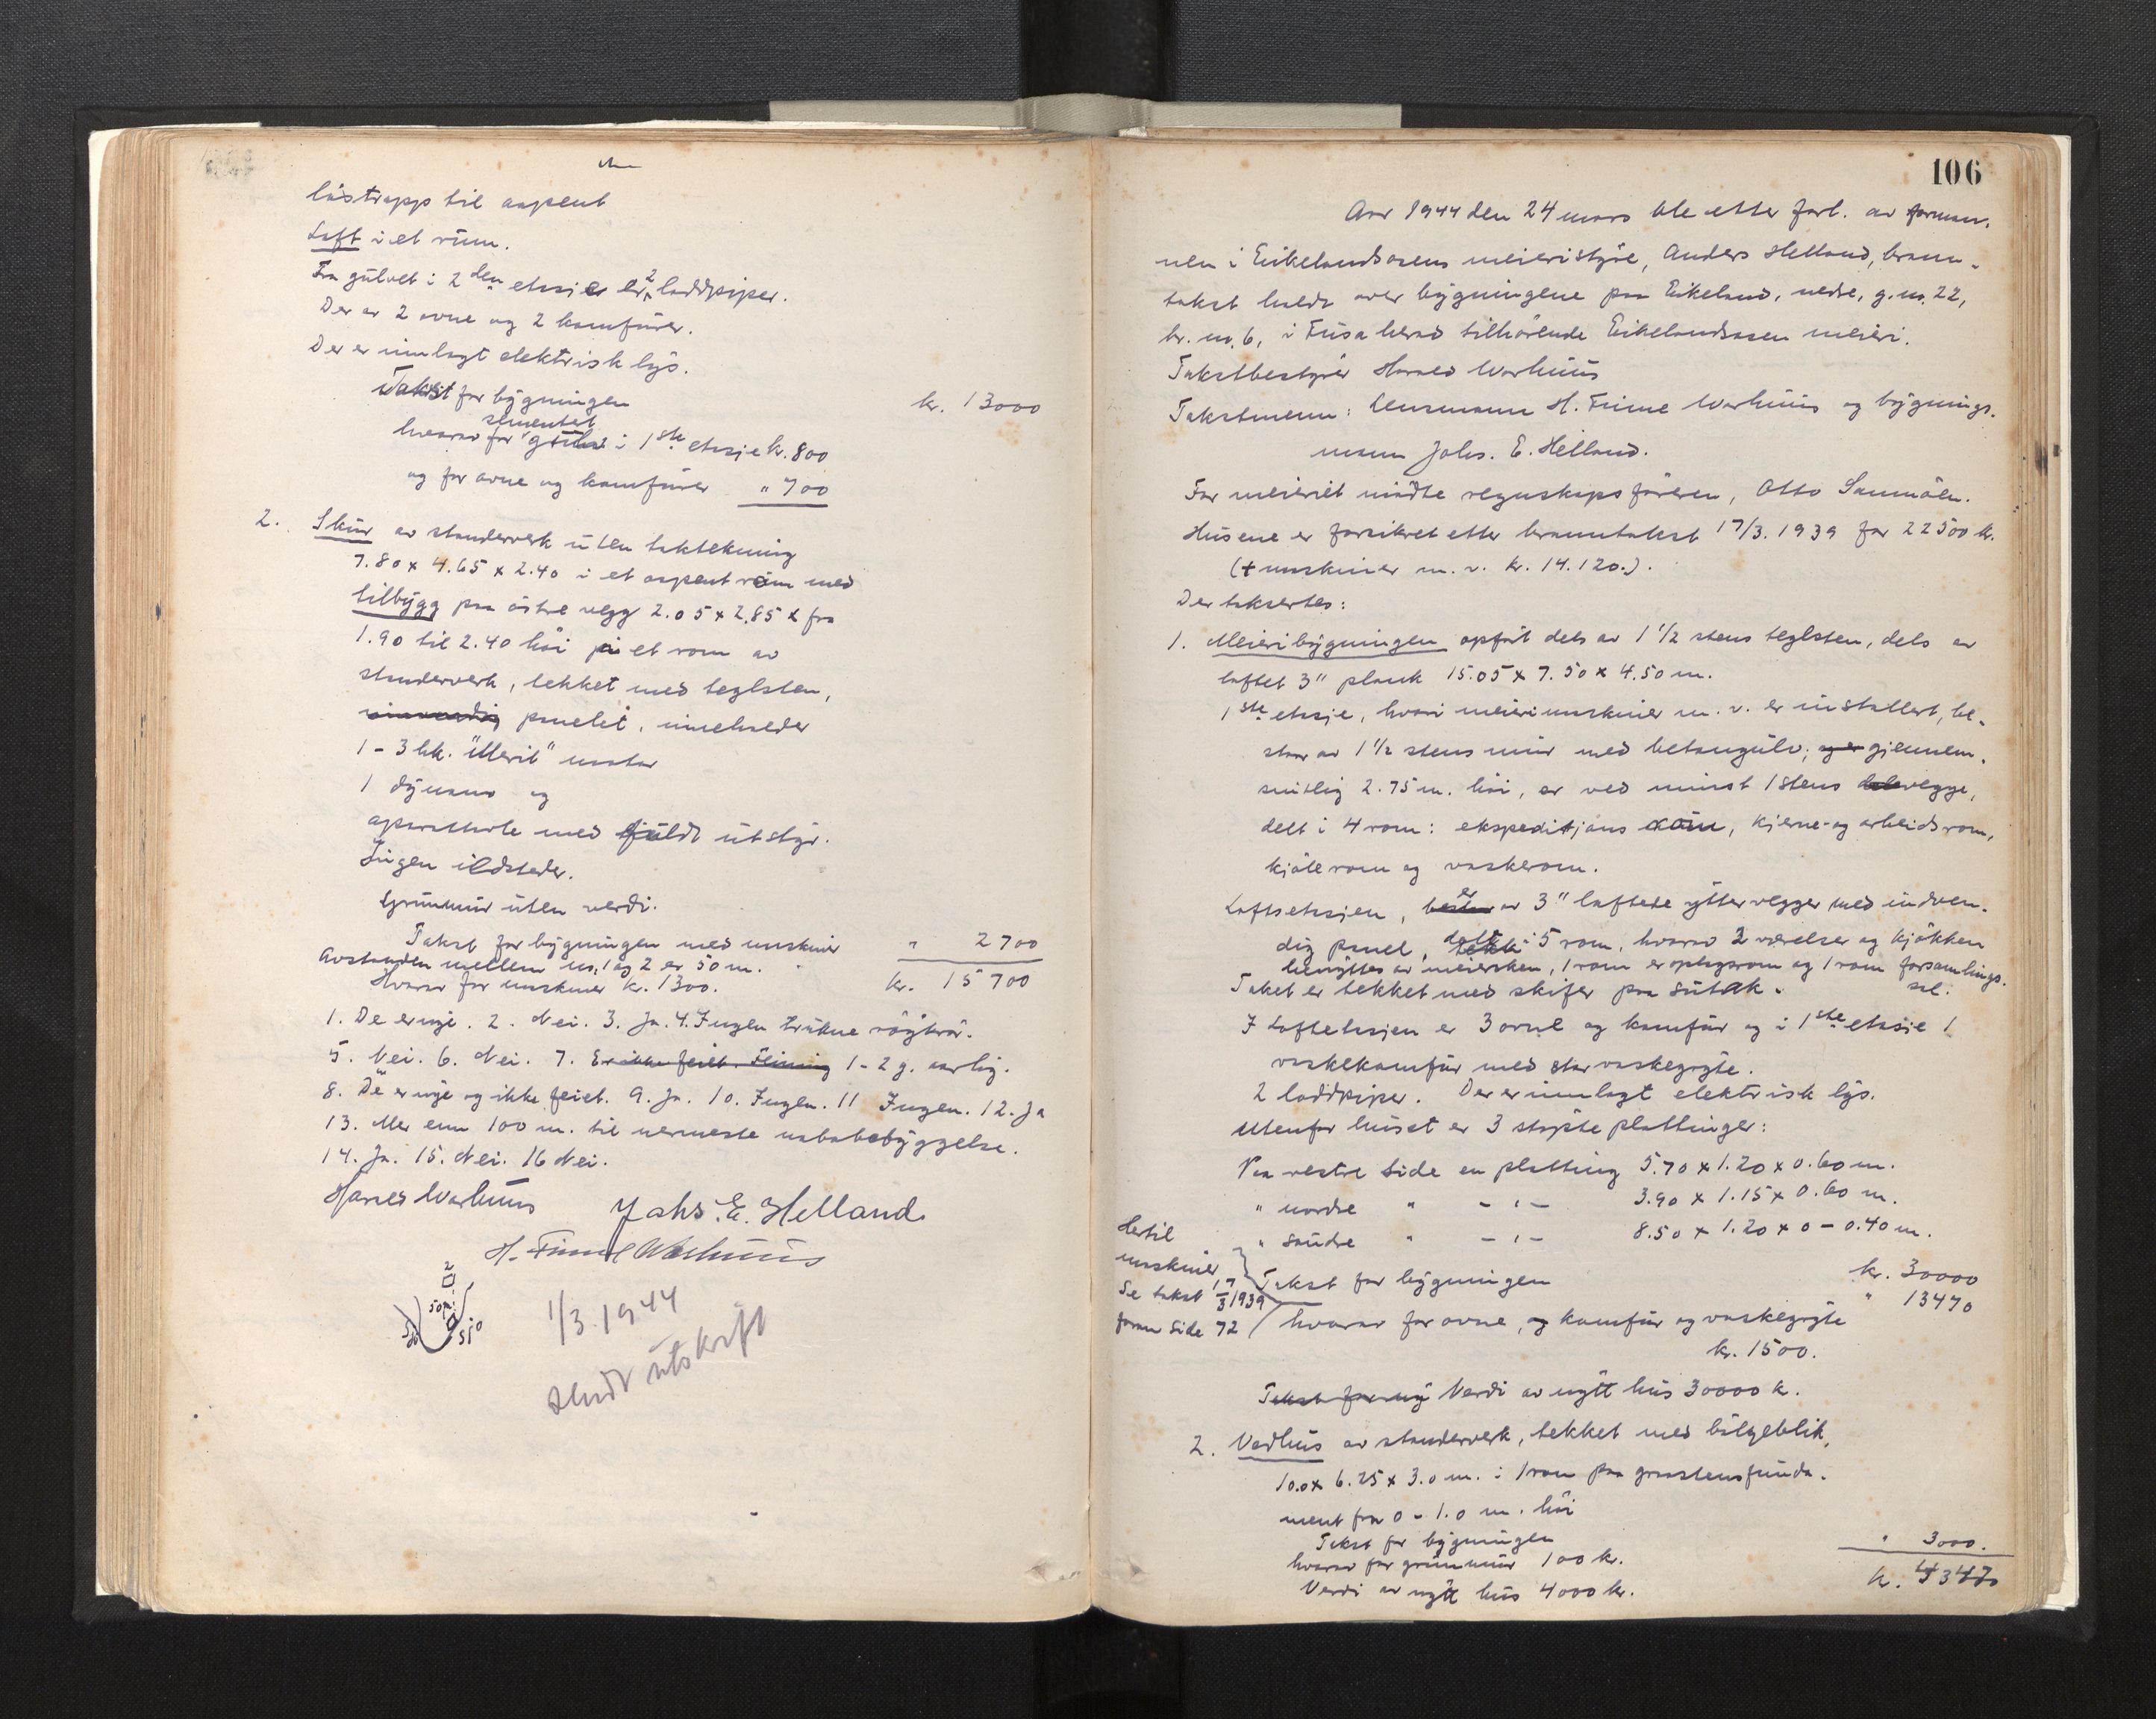 løstrapp til aapent
Loft i et rum.
Fra gulvet i 2den etasje er 2 loddpiper.
Der er 2 ovne og 2 komfurer.
Der er innlagt elektrisk lys.
Takst for bygningen kr. 13000
hvorav for sementet gulv i 1ste etasje kr. 800
og for ovne og komfurer " 700
2. Skur av standerverk uten taktekning
7.80 x 4.65 x 2.40 i et aapent rum med
tilbygg paa østre vegg 2.05 x 2.85 x fra
1.90 til 2.40 høi i et rom av
standerverk, tekket med teglsten,
innvendig panelet, inneholder
1 - 3 hk. "Merit" motor
1 dynamo og
aparattavle med fuldt utstyr.
Ingen ildsteder.
Grunnmur uten verdi.
Takst for bygningen med maskiner " 2700
Avstanden mellem no. 1 og 2 er 50 m.
Hvorav for maskiner kr. 1300. kr. 15700
1. De er nye. 2. Nei. 3. Ja. 4. Ingen trukne røgrør.
5. Nei. 6. Nei. 7. Er ikke feiet. Feining 1-2 g. aarlig.
8. De er nye og ikke feiet. 9. Ja. 10. Ingen. 11 Ingen. 12. Ja
13. Mer enn 100 m. til nermeste nabobebyggelse.
14. Ja. 15. Nei. 16 Nei.
Harald Warhuus Johs. E. Helland
H. Finne Warhuus
2
50 m.
Sjø
1/3 1944
sendt utskrift
106
Aar 1944 den 24 mars ble etter forl. av forman-
nen i Eikelandsosens meieristyre, Anders Helland, brann-
takst holdt over bygningene paa Eikeland, nedre, g.no. 22,
br. no. 6, i Fusa herad tilhørende Eikelandsosen meieri.
Takstbestyrer Harald Warhuus
Takstmenn: Lensmann H. Finne Warhuus og bygnings-
mann Johs. E. Helland.
For meieriet møtte regnskapsføreren, Otto Sunnøen.
Husene er forsikret etter branntakst 17/3. 1939 for 22500 kr.
(+ maskiner m. v. kr. 14.120.).
Der taksertes:
1. Meieribygningen opført dels av 1 1/2 stens teglsten, dels av
laftet 3" plank 15.05 x 7.50 x 4.50 m.
1ste etasje, hvori meierimaskiner m. v. er installert, be-
staar av 1 1/2 stens mur med betongulv; og er gjennem-
snitlig 2.75 m. høi, er ved minst 1 stens delevegge,
delt i 4 rom: ekspeditjons rom, kjerne- og arbeidsrom,
kjølerom og vaskerom.
Loftsetasjen, bestaar er av 3" laftede yttervegger med indven-
dig panel, tekk delt i 5 rom, hvorav 2 værelser og kjøkken
benyttes av meiersken, 1 rom er oplagsrom og 1 rom forsamlings-
sal.
Taket er tekket med skifer paa sutak.
I Loftetasjen er 3 ovne og komfur og i 1ste etasje 1
vaskekomfur med stor vaskegryte.
2 loddpiper. Der er innlagt elektrisk lys.
Utenfor huset er 3 støpte plattinger:
Paa vestre side en platting 5.70 x 1.20 x 0.60 m.
" nordre " - " - 3.90 x 1.15 x 0.60 m.
" søndre " - " - 8.50 x 1.20 x 0 - 0.40 m.
Hertil
maskiner
Se takst 17/3 1939
foran side 72
Takst for bygningen kr. 30000
" 13470
hvorav for ovne, og komfur og vaskegryte
kr. 1500.
Takst for ny Verdi av nytt hus 30000 k.
2. Vedhus av standerverk, tekket med bølgeblik,
10.0 x 6.25 x 3.0 m. i 1 rom paa graastensfunda-
ment fra 0 - 1.0 m. høi
Takst for bygningen " 3000.
hvorav for grunnmur 100 kr.
Verdi av nytt hus 4000 kr. k.